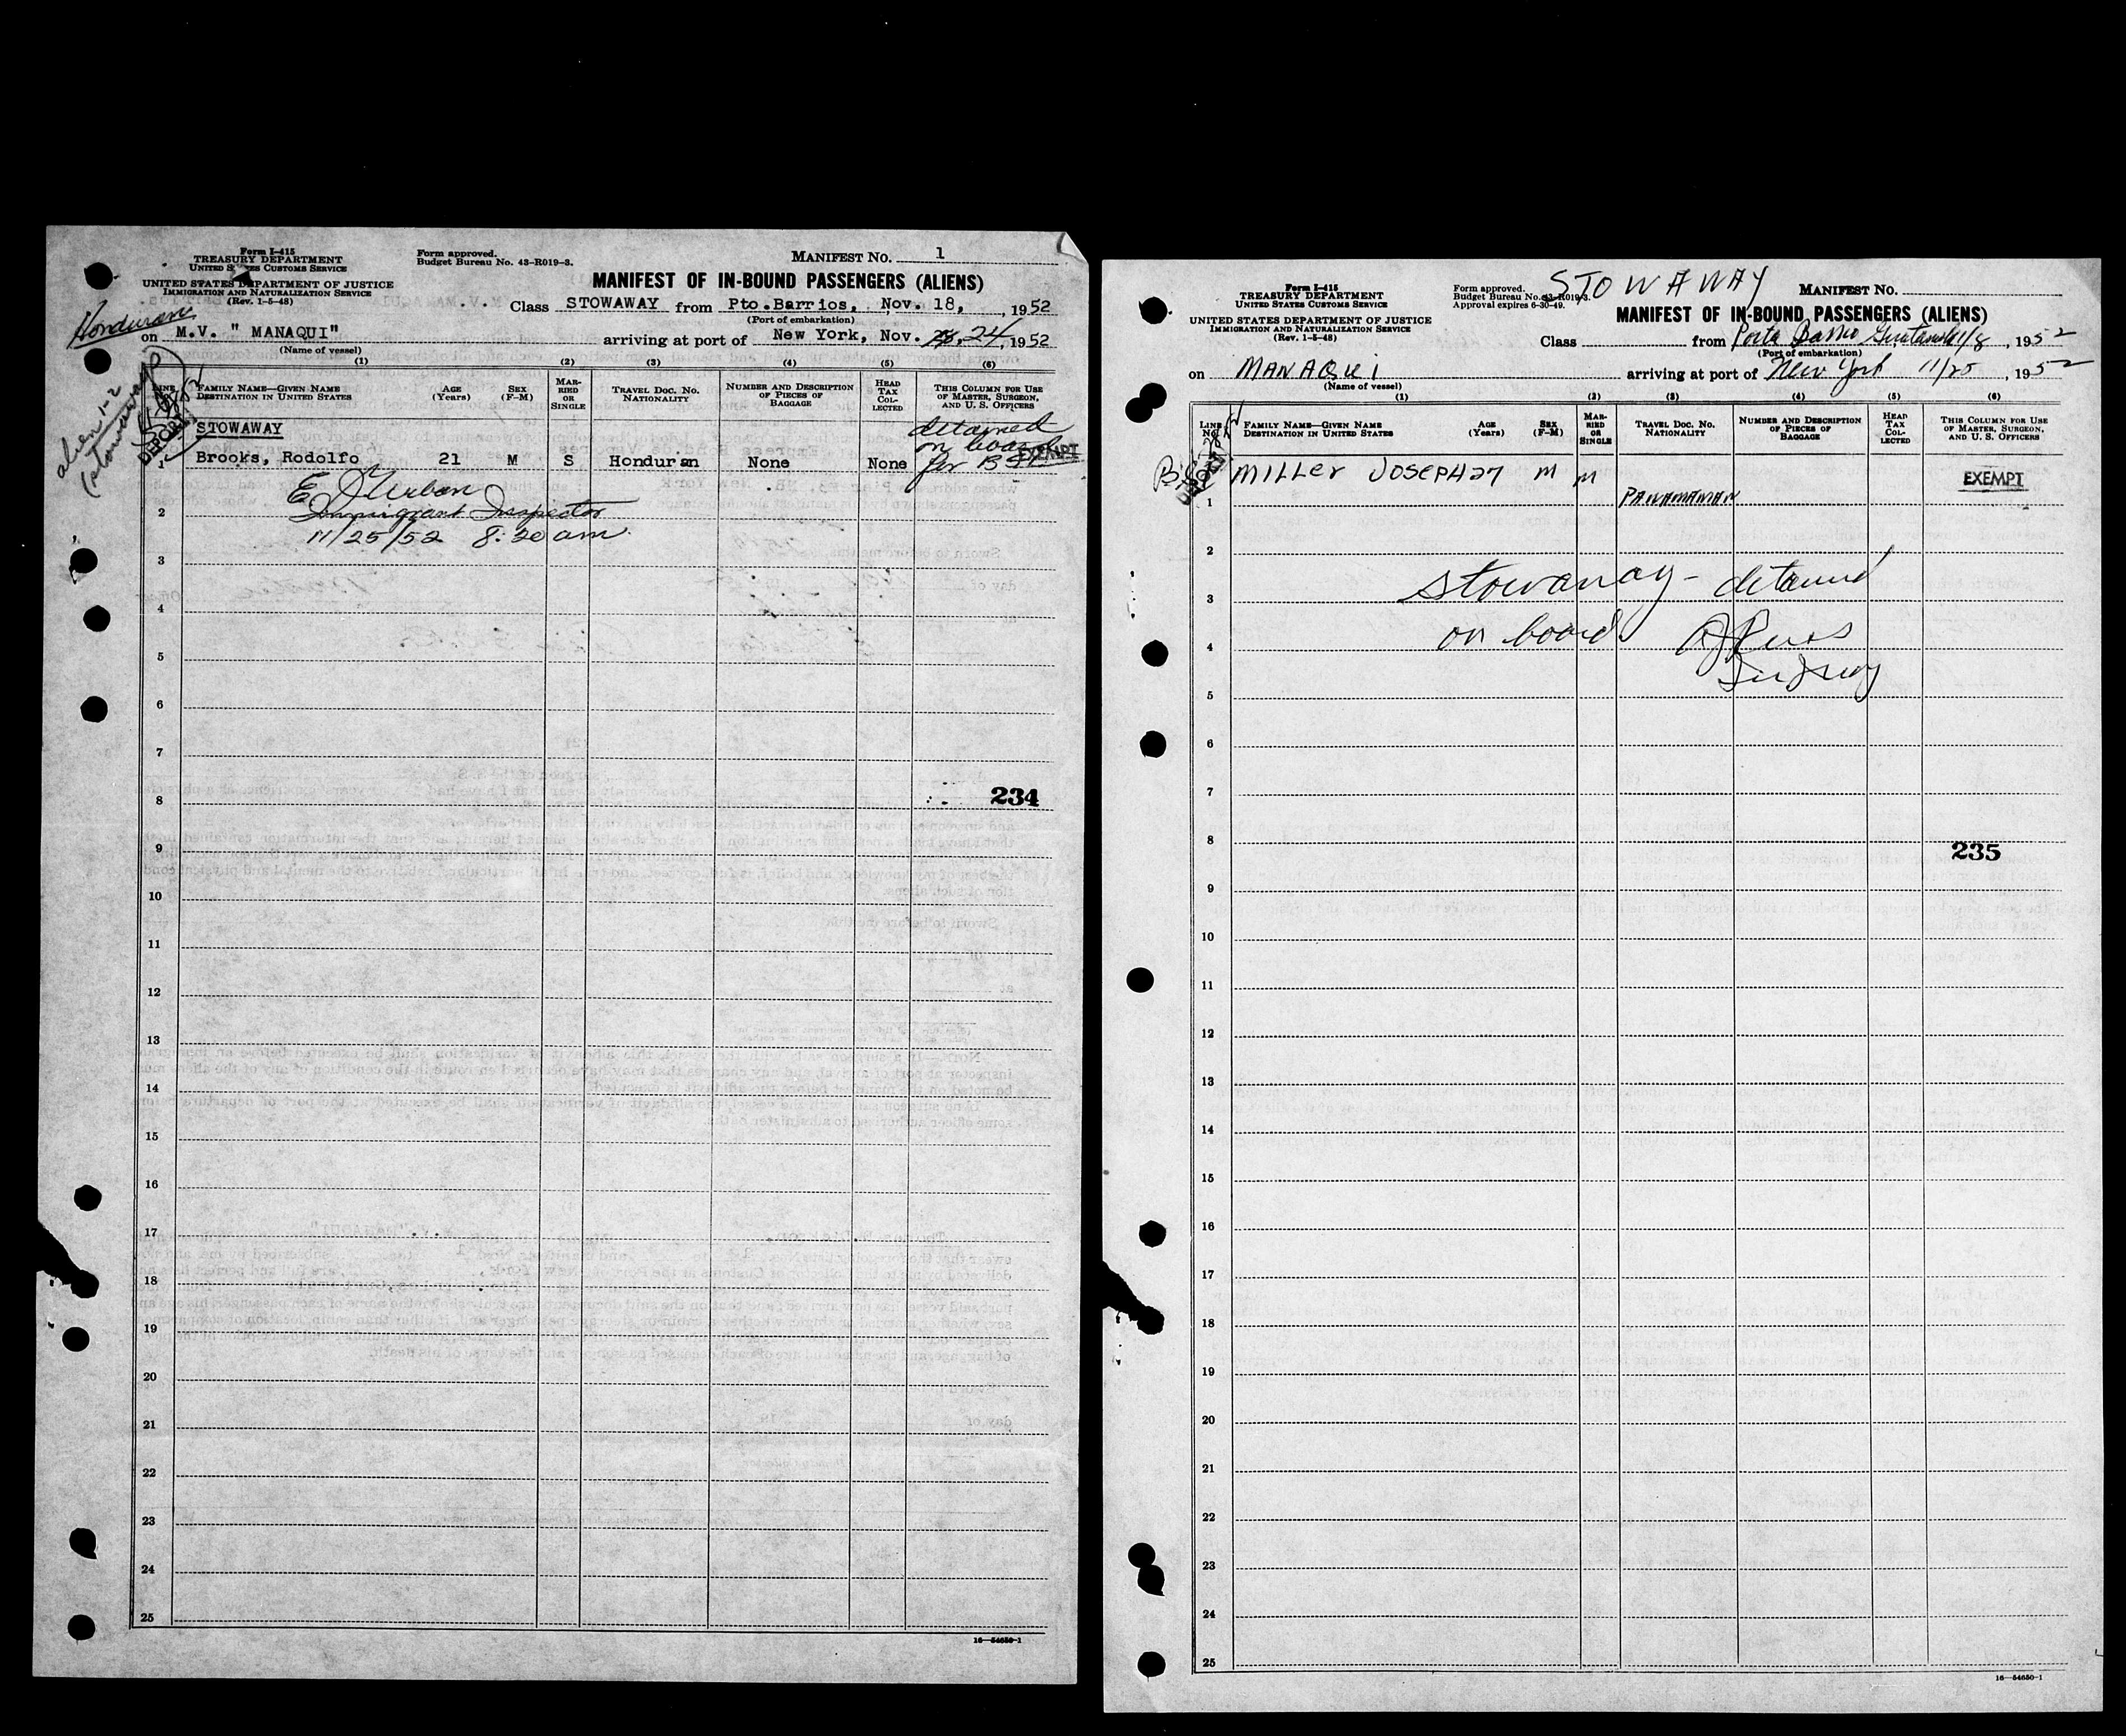 Form I-415
TREASURY DEPARTMENT
UNITED STATES CUSTOMS SERVICE
UNITED STATES DEPARTMENT OF JUSTICE
IMMIGRATION AND NATURALIZATION SERVICE
(Rev. 1-5-48)
Form approved.
Budget Bureau No. 43-R019-3.
MANIFEST NO. 1
MANIFEST OF IN-BOUND PASSENGERS (ALIENS)
Class STOWAWAY from Pto.Barrios, Nov. 18, 1952
(Port of embarkation)
Honduran
on M.V. " MANAQUI" arriving at port of New York, Nov. 24, 1952
(Name of vessel)
(1) (2) (3) (4) (5) (6)
LINE No. FAMILY NAME—GIVEN NAME DESTINATION IN UNITED STATES AGE (Years) SEX (F-M) MARRIED OR SINGLE TRAVEL DOC. NO. NATIONALITY NUMBER AND DESCRIPTION OF PIECES OF BAGGAGE HEAD TAX COLLECTED THIS COLUMN FOR USE OF MASTER, SURGEON, AND U. S. OFFICERS
alien 1-2
(stowaway)
DEPORT
STOWAWAY
detained
on board
for BSI
EXEMPT
1 Brooks, Rodolfo 21 M S Honduran None None
E J Urban
Immigrant Inspector
11/25/52 8:20 am
2
3
4
5
6
7
8
234
9
10
11
12
13
14
15
16
17
18
19
20
21
22
23
24
25
16—54650-1
Form I-415
TREASURY DEPARTMENT
UNITED STATES CUSTOMS SERVICE
UNITED STATES DEPARTMENT OF JUSTICE
IMMIGRATION AND NATURALIZATION SERVICE
(Rev. 1-5-48)
Form approved.
Budget Bureau No. 43-R019-3.
Approval expires 6-30-49.
STOWAWAY
MANIFEST NO.
MANIFEST OF IN-BOUND PASSENGERS (ALIENS)
Class from Porto Barrio Guatamala 11/8, 1952
(Port of embarkation)
on MANAQUi arriving at port of New York 11/25 1952
(Name of vessel)
(1) (2) (3) (4) (5) (6)
LINE No. FAMILY NAME—GIVEN NAME DESTINATION IN UNITED STATES AGE (Years) SEX (F-M) MARRIED OR SINGLE TRAVEL DOC. NO. NATIONALITY NUMBER AND DESCRIPTION OF PIECES OF BAGGAGE HEAD TAX COLLECTED THIS COLUMN FOR USE OF MASTER, SURGEON, AND U. S. OFFICERS
MILLER JOSEPH 27 M M EXEMPT
1 PANAMANIAN
2
stowaway - detained
3
on board
4
5
6
7
8
235
9
10
11
12
13
14
15
16
17
18
19
20
21
22
23
24
25
16—54650-1